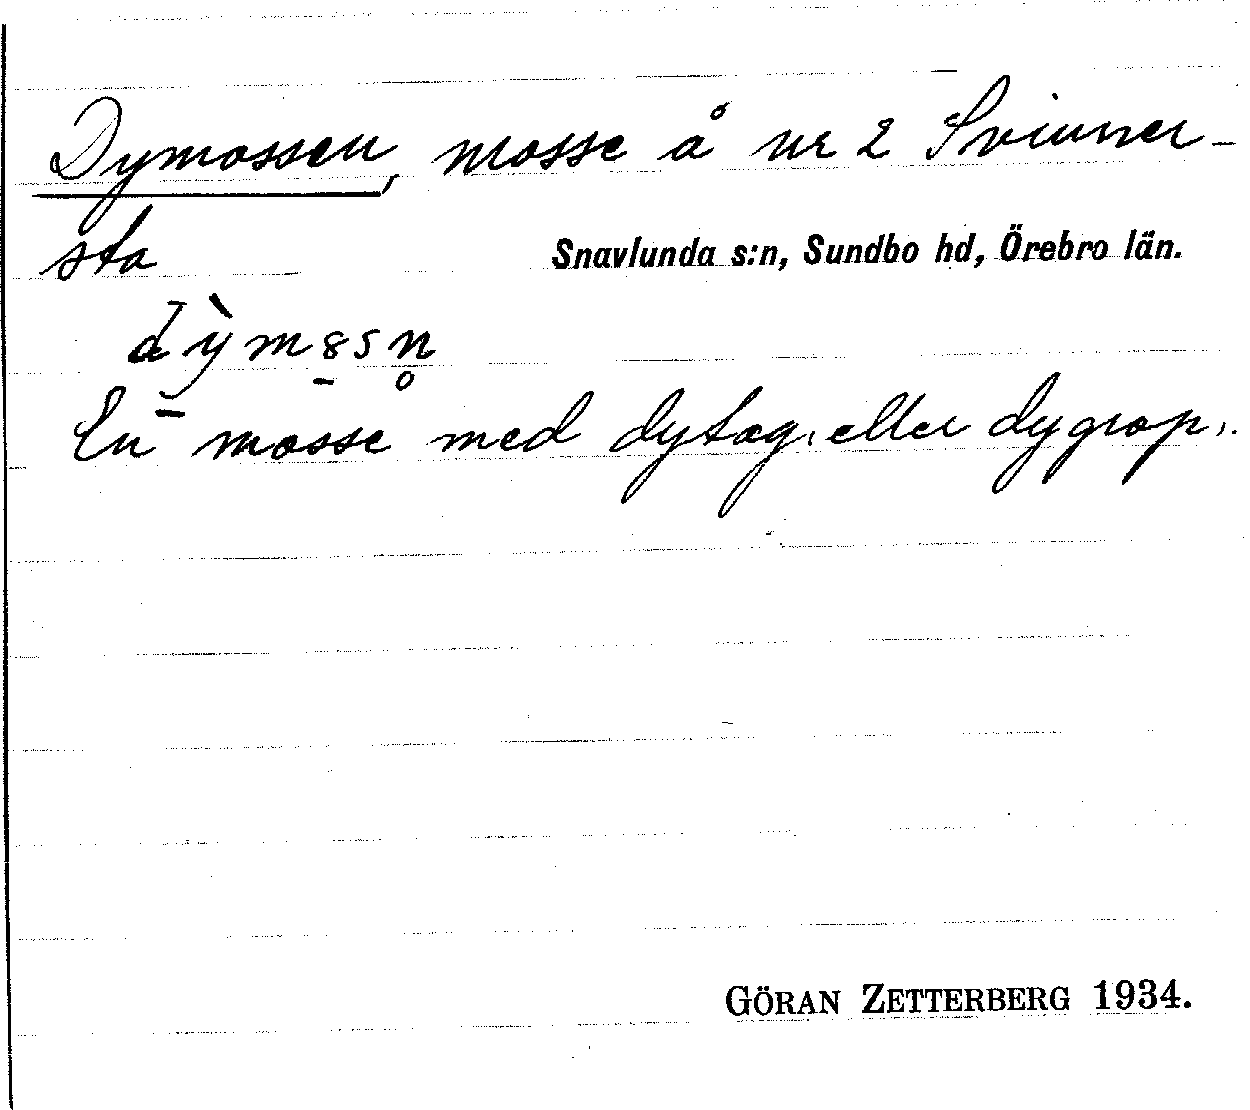 Dymossen, mosse å nr 2 Svinner-
sta
Snavlunda s:n, Sundbo hd, Örebro län.
dỳ̠m8̠sn̥
En mosse med dytag, eller dygrop,.
GÖRAN ZETTERBERG 1934.